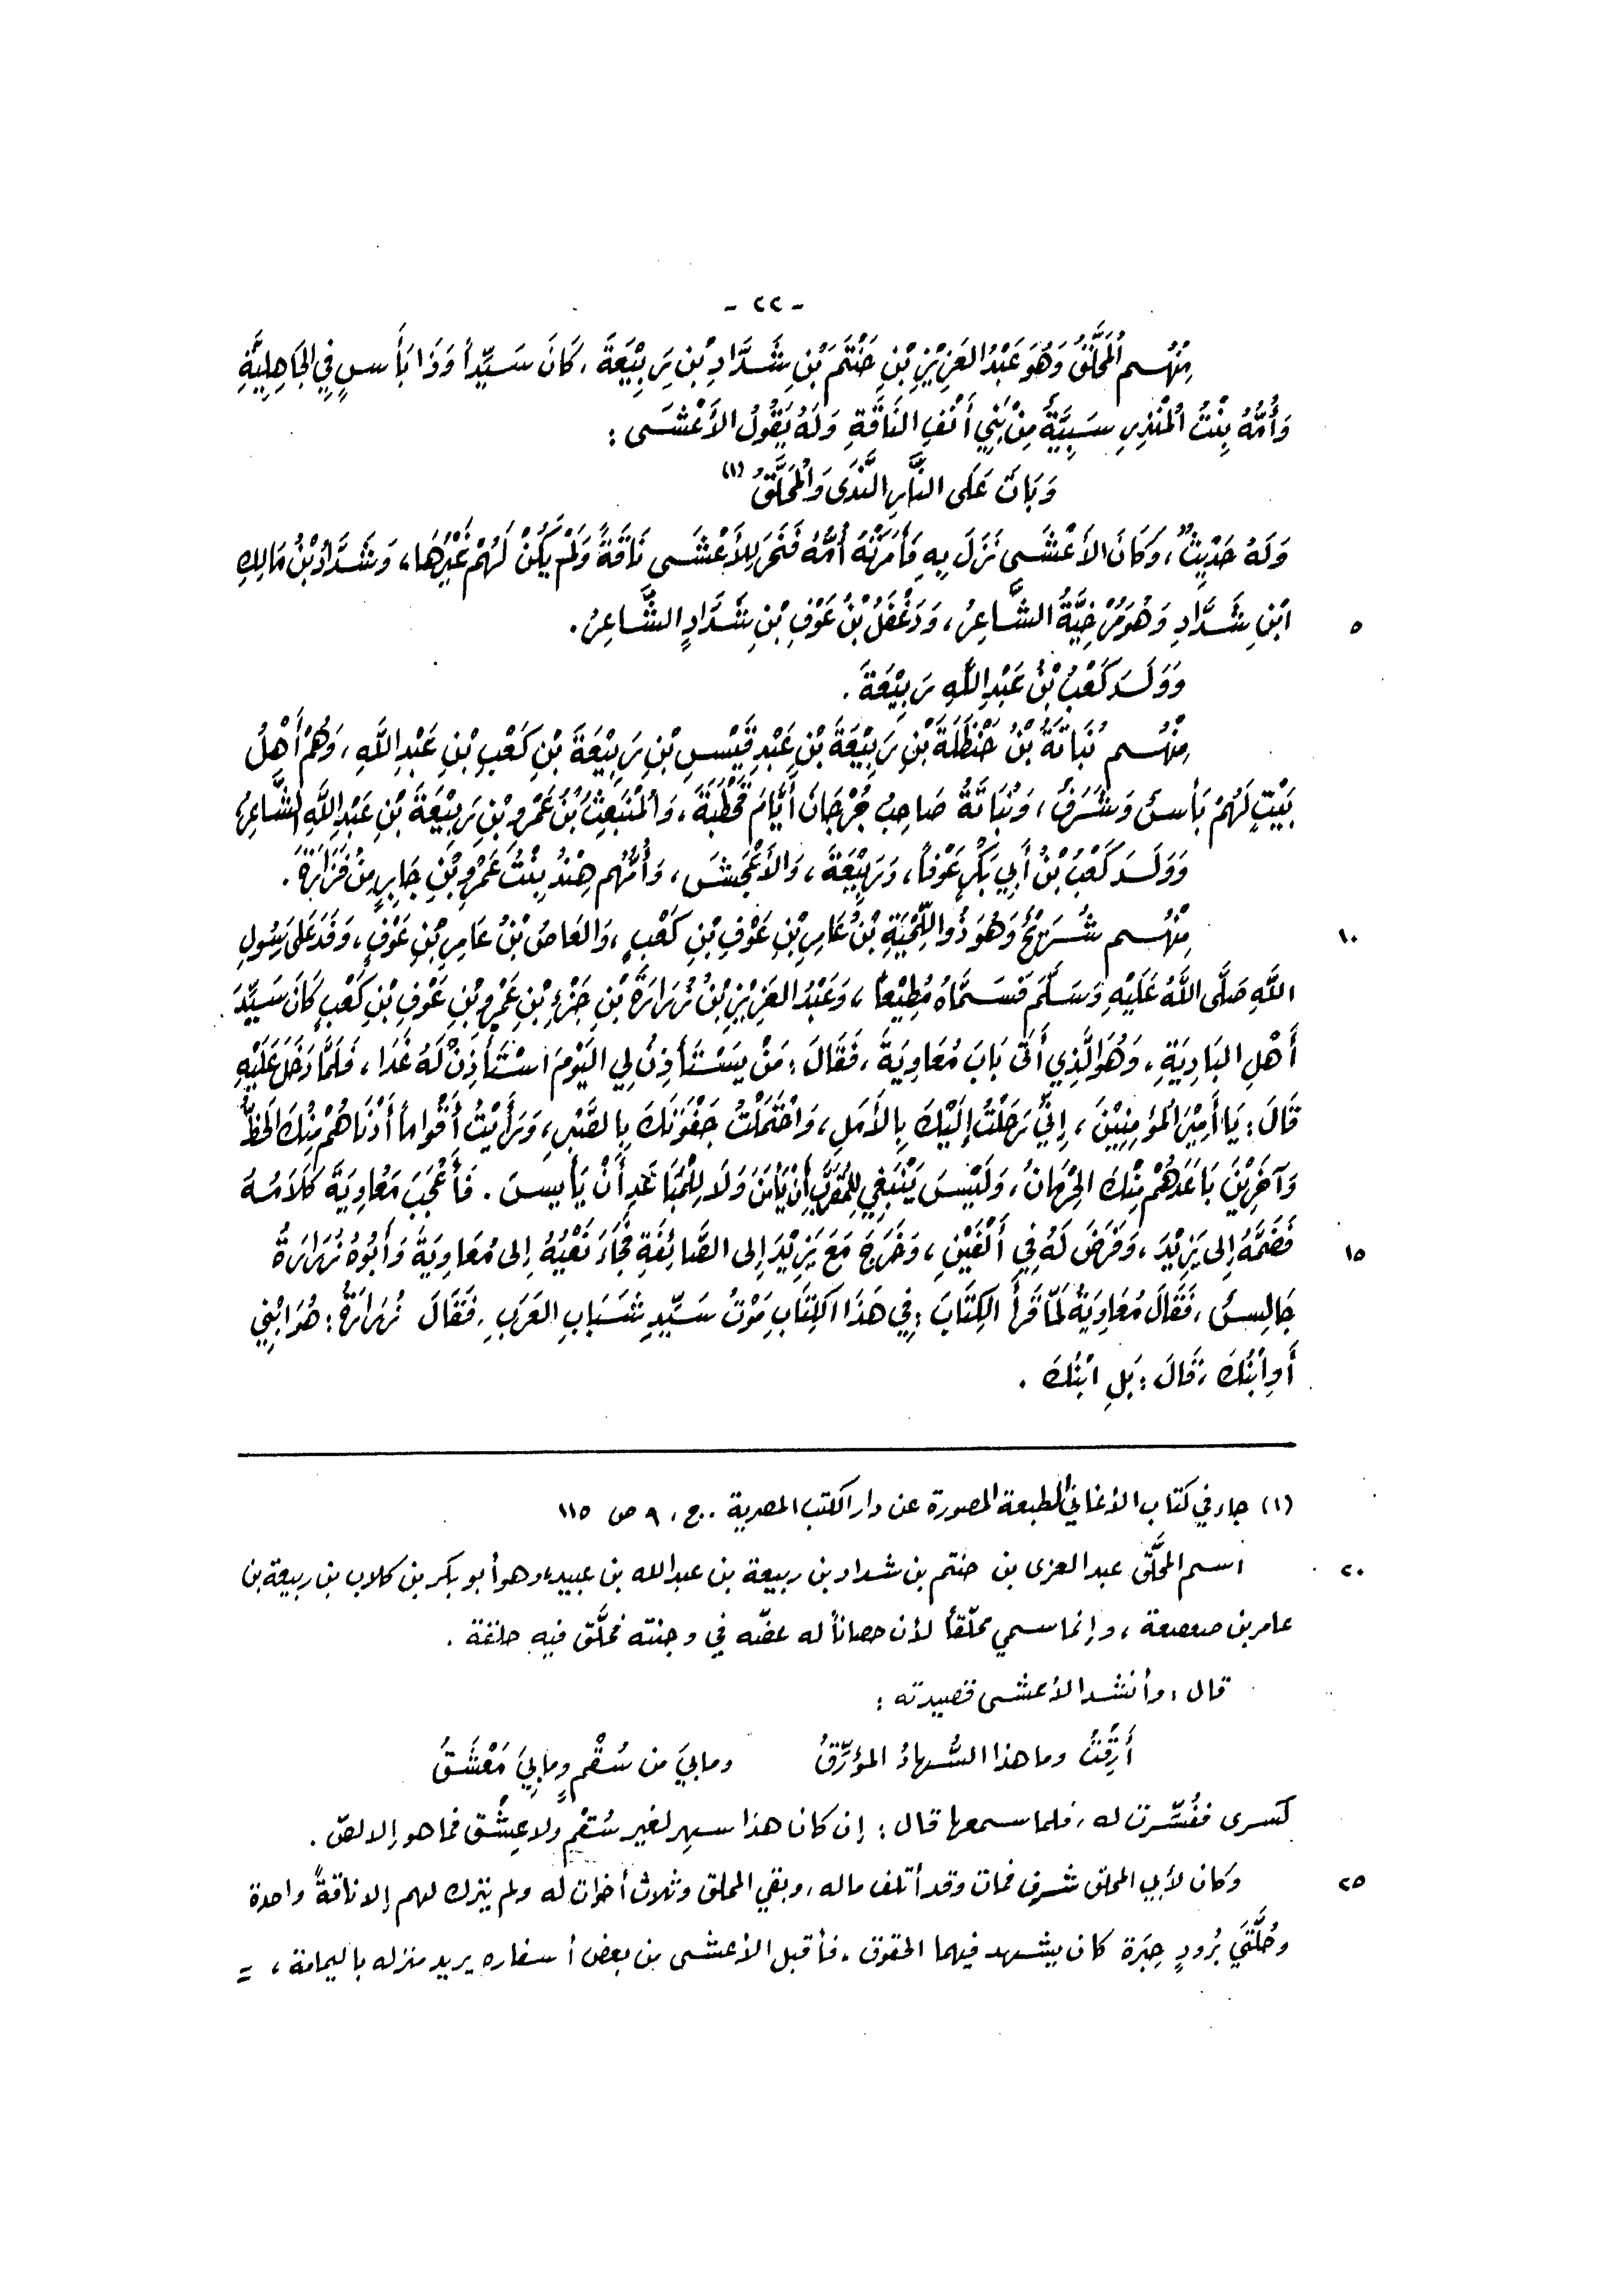 - ٢٢ -
مِنْهُم المُحَلَّقُ وَهُوَ عَبْدُ العَزِيْزِ بْنِ حَنْتَمَ بْنِ شَدَّادِ بْنِ رَبِيْعَةَ، كَانَ سَيِّداً وَذَا بَأْسٍ فِي الجَاهِلِيَّةِ
وَأُمُّهُ بِنْتُ المُنْذِرِ سَبِيَّةٌ مِنْ بَنِي أَنْفِ النَّاقَةِ وَلَهُ يَقُولُ الأَعْشَى :
وَبَاتَ عَلَى النَّارِ النَّدَى وَالْمُحَلَّقُ (١)
وَلَهُ حَدِيْثٌ، وَكَانَ الأَعْشَى نَزَلَ بِهِ فَأَمَرَتْهُ أُمُّهُ فَنَحَرَ لِلأَعْشَى نَاقَةً وَلَمْ يَكُنْ لَهُمْ غَيْرُهَا، وَشَدَّادُ بْنُ مَالِكِ
٥ ابْنِ شَدَّادِ وَهُوَ مُرْخِيَّةُ الشَّاعِرُ، وَدَغْفَلُ بْنُ عَوْفِ بْنِ شَدَّادٍ الشَّاعِرُ.
وَوَلَدَ كَعْبُ بْنُ عَبْدِ اللَّهِ رَبِيْعَةَ.
مِنْهُم نُبَاتَةُ بْنُ حَنْظَلَةَ بْنِ رَبِيْعَةَ بْنِ عَبْدِ قَيْسِ بْنِ رَبِيْعَةَ بْنِ كَعْبِ بْنِ عَبْدِ اللَّهِ، وَهُمْ أَهْلُ
بَيْتٍ لَهُمْ بَأْسٌ وَشَرَفٌ، وَنُبَاتَةُ صَاحِبُ جُرْجَانَ أَيَّامَ قَحْطَبَةَ، وَالمُنْبَعِثُ بْنُ عَمْرِو بْنِ رَبِيْعَةَ بْنِ عَبْدِ اللَّهِ الشَّاعِرُ
وَوَلَدَ كَعْبُ بْنُ أَبِي بَكْرٍ عَوْفاً، وَرَبِيْعَةَ، وَالأَعْجَشَ، وَأُمُّهُم هِنْدُ بِنْتُ عَمْرِو بْنِ جَابِرٍ مِنْ فَزَارَةَ.
١٠ مِنْهُم شُرَيْحُ وَهُوَ ذُو اللِّحْيَةِ بْنُ عَامِرِ بْنِ عَوْفِ بْنِ كَعْبٍ، وَالعَاصُ بْنُ عَامِرِ بْنِ عَوْفٍ، وَفَدَ عَلَى رَسُولِ
اللَّهِ صَلَّى اللَّهُ عَلَيْهِ وَسَلَّمَ فَسَمَّاهُ مُطِيْعاً، وَعَبْدُ العَزِيْزِ بْنُ زُرَارَةَ بْنِ جَزْءِ بْنِ عَمْرِو بْنِ عَوْفِ بْنِ كَعْبٍ كَانَ سَيِّدَ
أَهْلِ البَادِيَةِ، وَهُوَ الَّذِي أَتَى بَابَ مُعَاوِيَةَ، فَقَالَ: مَنْ يَسْتَأْذِنُ لِي اليَوْمَ اسْتَأْذِنْ لَهُ غَدَا، فَلَمَّا دَخَلَ عَلَيْهِ
قَالَ: يَا أَمِيْرَ المُؤْمِنِيْنَ، إِنِّي رَحَلْتُ إِلَيْكَ بِالأَمَلِ، وَاحْتَمَلْتُ جَفْوَتَكَ بِالصَّبْرِ، وَرَأَيْتُ أَقْوَاماً أَدْنَاهُمْ مِنْكَ الحَظُّ
وَآخَرِيْنَ بَاعَدَهُمْ مِنْكَ الحِرْمَانُ، وَلَيْسَ يَنْبَغِي لِلْمُقَرَّبِ أَنْ يَأْمَنَ وَلَا لِلْمُبَاعَدِ أَنْ يَأْيَسَ. فَأَعْجَبَ مَعُاوِيَةَ كَلَامُهُ
١٥ فَضَمَّهُ إِلى يَزِيْدَ، وَفَرَضَ لَهُ فِي أَلْفَيْنِ، وَخَرَجَ مَعَ يَزِيْدَ إِلى الصَّائِفَةِ فَجَاءَ نَعْيُهُ إِلى مُعَاوِيَةَ وَأَبُوهُ زُرَارَةُ
جَالِسٌ، فَقَالَ مُعَاوِيَةُ لَمَّا قَرَأَ الكِتَابَ: فِي هَذَا الكِتَابِ مَوْتُ سَيِّدِ شَبَابِ العَرَبِ، فَقَالَ زُرَارَةُ: هُوَ ابْنِي
أَوِ ابْنُكَ، قَالَ: بَلِ ابْنُكَ.
(١) جاء في كتاب الأغاني الطبعة المصورة عن دار الكتب المصرية . ج، ٩ ص ١١٥
٢٠ اسم المحلَّق عبد العزى بن حنتم بن شداد بن ربيعة بن عبد الله بن عبيد، وهو أبو بكر بن كلاب بن ربيعة بن
عامر بن صعصعة، وإنما سمي محلّقاً لأن حصاناً له عضّه في وجنته فحلَّق فيه حلقة.
قال : وأنشد الأعشى قصيدته :
أَرِقْتُ وما هذا السُّهادُ المؤرِّقُ وما بيَ من سُقْمٍ وما بيَ مَعْشَقُ
كسرى ففُسِّرت له، فلما سمعها قال : إن كان هذا سهر لغير سُقْمٍ ولا عِشْق فما هو إلا لصّ.
٢٥ وكان لأبي المحلق شرف فمات وقد أتلف ماله، وبقي المحلق وثلاث أخوات له ولم يترك لهم إلا ناقةً واحدة
وحُلَّتَي بُرودٍ حِبَرة كان يشهد فيهما الحقوق. فأقبل الأعشى من بعض أسفاره يريد منزله باليمامة، =